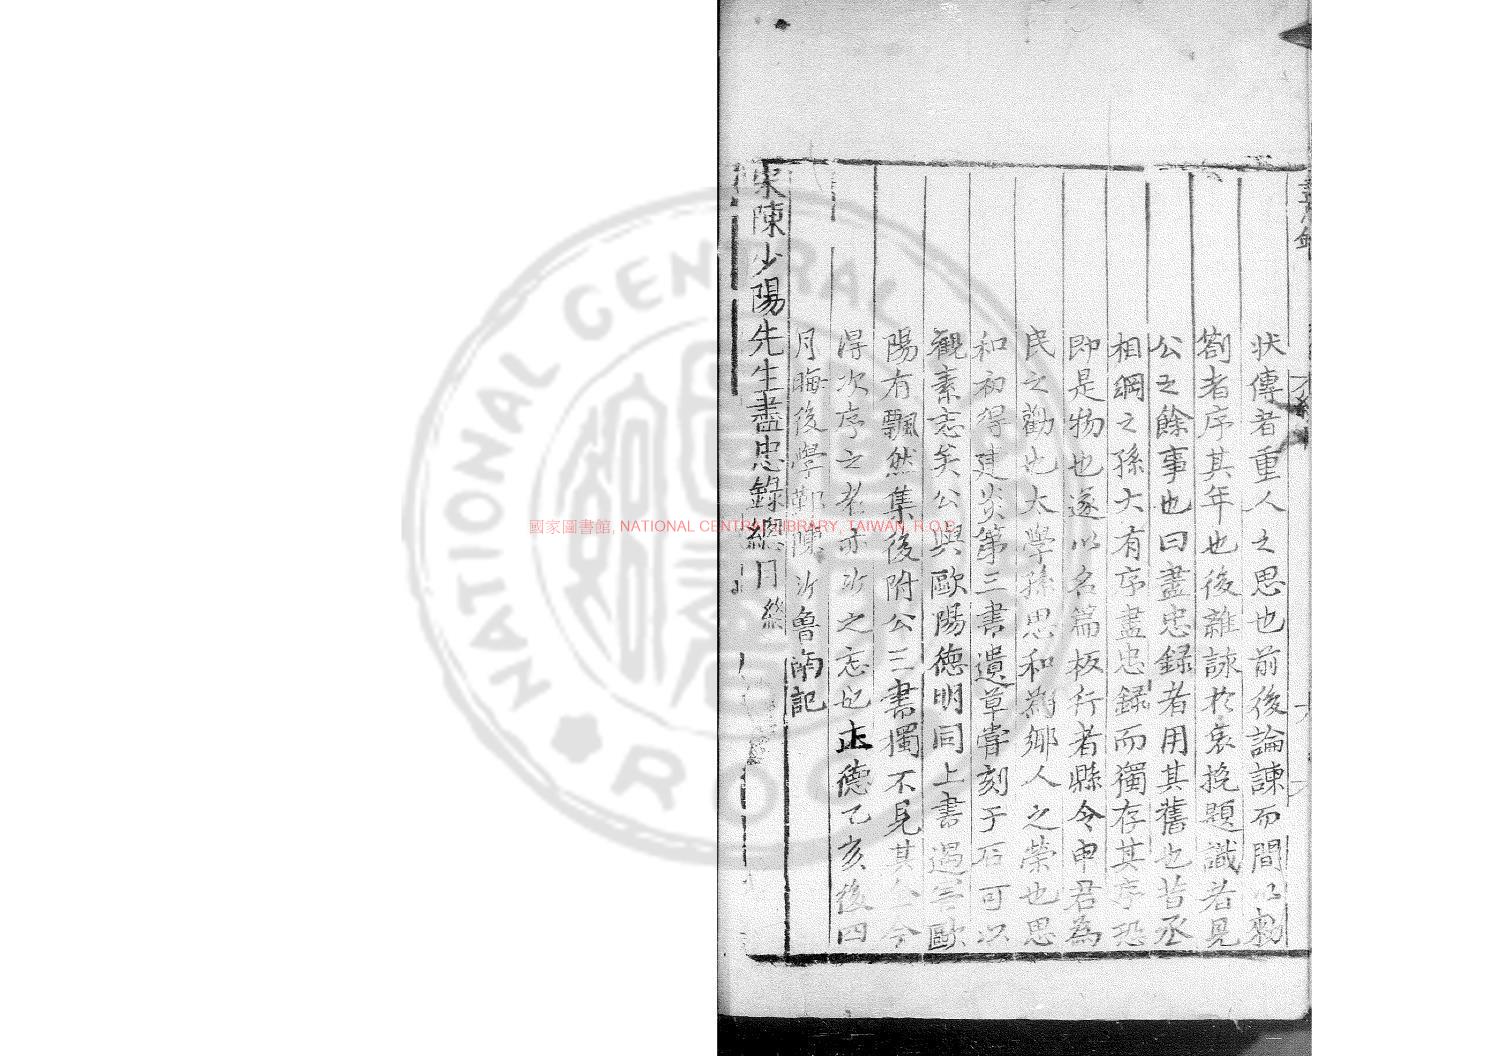 盡忠錄
狀傳者重人之思也前後論諫而間以勑
劄者序其年也後雜詠於哀挽題識者見
公之餘事也曰盡忠録者用其舊也昔丞
相綱之孫大有序盡忠録而獨存其序恐
即是物也遂以名篇板行者縣令申君為
民之勸也大學孫思和為鄉人之榮也思
和初得建炎第三書遺草嘗刻于石可以
觀素志矣公與歐陽德明同上書遇害歐
陽有飄然集後附公三書獨不見其今
得次序之者亦之志也正德乙亥後四
月晦後學鄞陳沂魯南記
宋陳少陽先生盡忠錄總目終
國家圖書館, NATIONAL CENTRAL LIBRARY, TAIWAN, R.O.C
NATIONAL CENTRAL
ROC